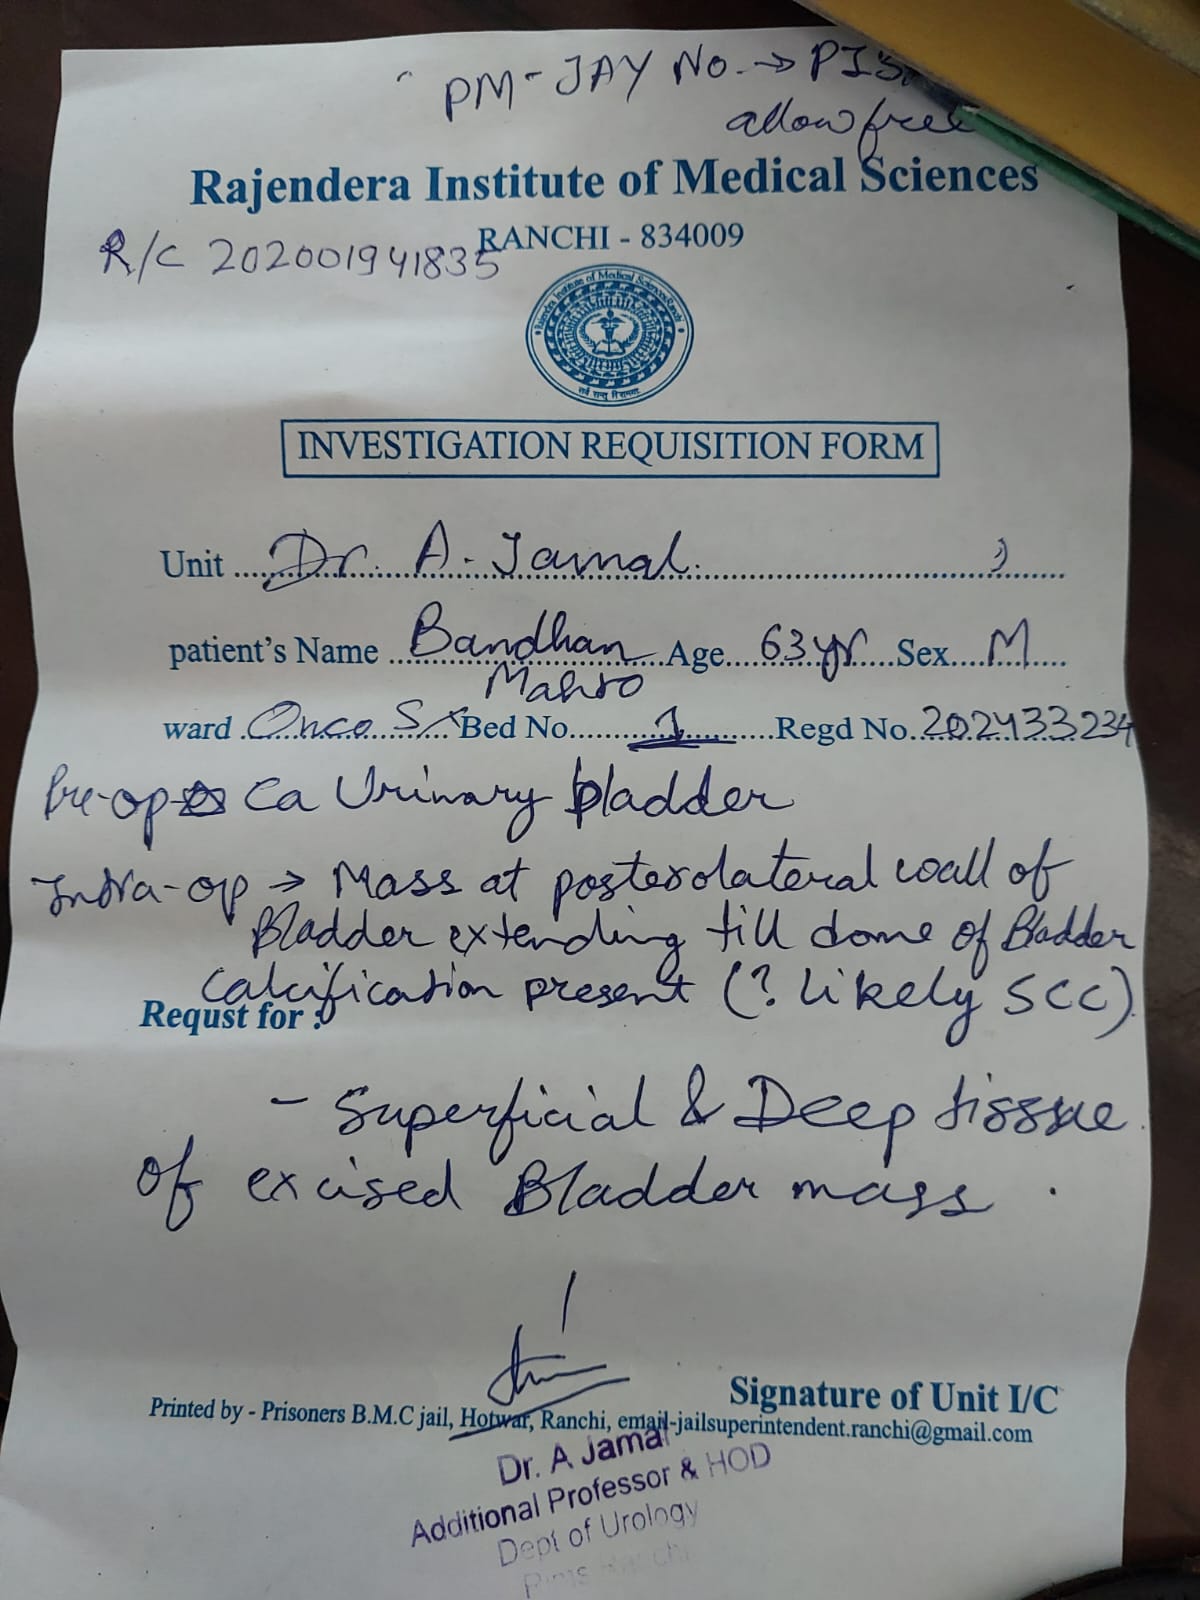 PM-JAY No. → PI
allow free
Rajendera Institute of Medical Sciences
RANCHI - 834009
R/C 202001941835
INVESTIGATION REQUISITION FORM
Unit Dr. A. Jamal.
patient's Name Bandhan Mahto Age 63yr Sex M
ward Onco Sx Bed No. 1 Regd No. 202433234
Pre-op Ca Urinary bladder
Intra-op → Mass at posterolateral wall of
Bladder extending till dome of Bladder
Calcification present (? likely SCC)
Requst for :
- Superficial & Deep tissue
of excised Bladder mass.
Signature of Unit I/C
Printed by - Prisoners B.M.C jail, Hotwar, Ranchi, email-jailsuperintendent.ranchi@gmail.com
Dr. A Jamal
Additional Professor & HOD
Dept of Urology
Rims Ranchi